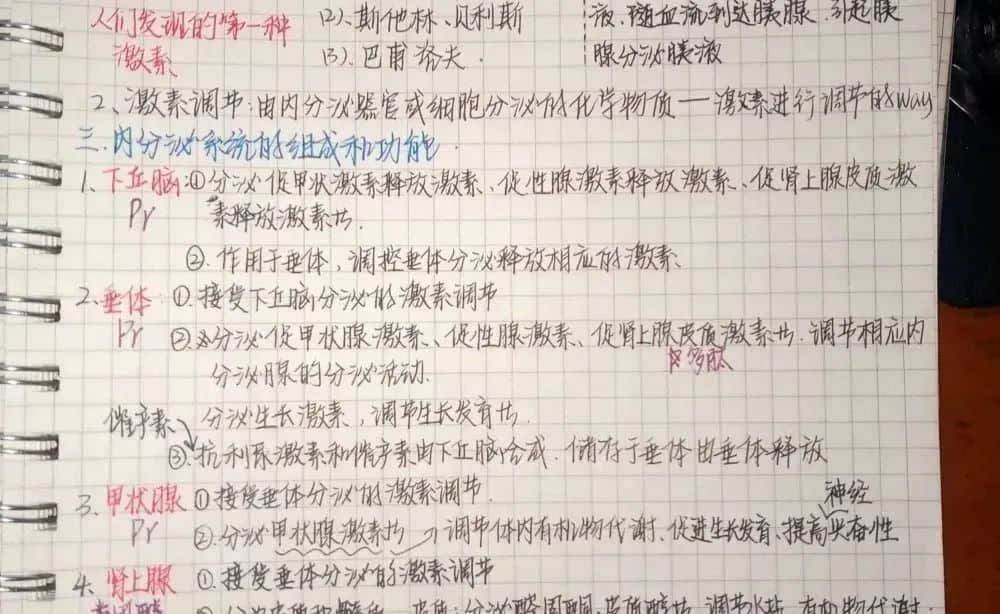 人们发现的第一种
激素
(2).斯他林、贝利斯
(3).巴甫洛夫.
液.随血流到达胰腺.引起胰
腺分泌胰液
2、激素调节:由内分泌器官或细胞分泌的化学物质——激素进行调节的way
三.内分泌系统的组成和功能.
1、下丘脑:①分泌促甲状激素释放激素、促性腺激素释放激素、促肾上腺皮质激
Pr 素释放激素せ.
②.作用于垂体,调控垂体分泌释放相应的激素.
2、垂体 ①.接受下丘脑分泌的激素调节
Pr ②.分泌促甲状腺激素、促性腺激素、促肾上腺皮质激素せ.调节相应内
多肽
分泌腺的分泌活动.
催产素 分泌生长激素,调节生长发育せ.
③.抗利尿激素和催产素由下丘脑合成.储存于垂体由垂体释放
3.甲状腺 ①接受垂体分泌的激素调节.
神经
Pr ②.分泌甲状腺激素せ→调节体内有机物代谢、促进生长发育、提高兴奋性
4.肾上腺 ①.接受垂体分泌的激素调节